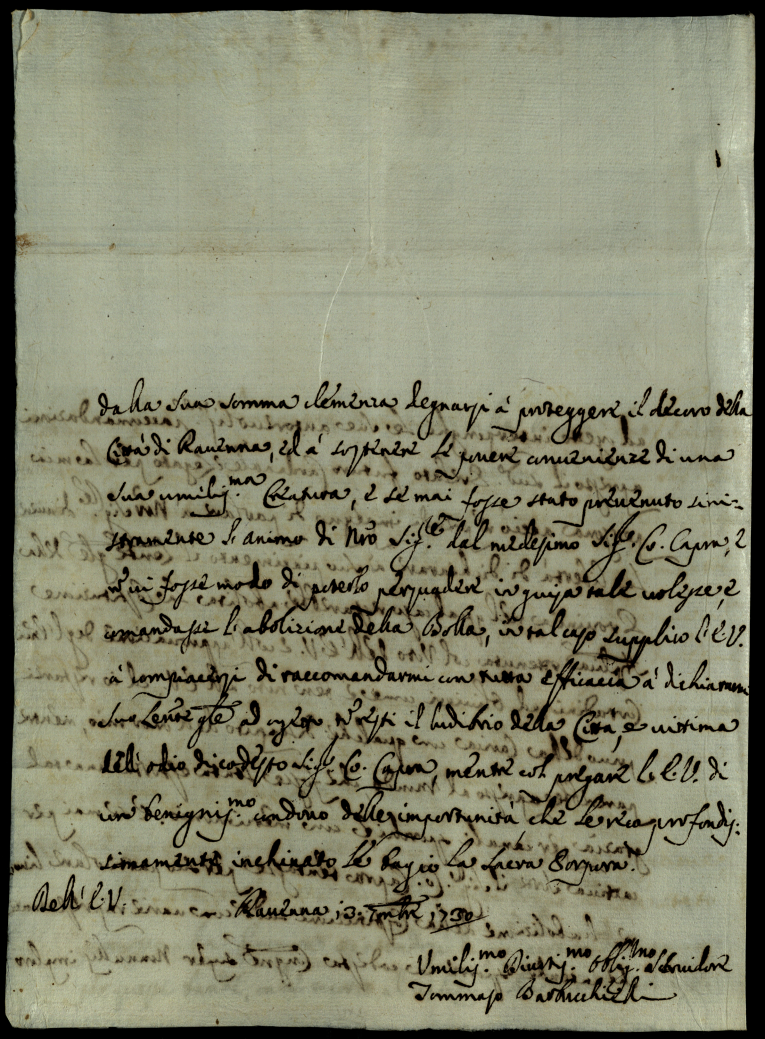 dalla sua somma clemenza degnarsi à proteggere il decoro della
Città di Ravenna, ed à sostenere le povere convenienze di una
sua umiliss.ma Creatura, e se mai fosse stato prevenuto sini-
stramente l'animo di Nro Sig.re dal medesimo Sig.r Co. Capra, e
vi fosse modo di poterlo persuadere in guisa tale volesse, e
comandasse l'abolizione della Bolla, in tal caso supplico l'E.V.
à compiacersi di raccomandarmi con tutta efficacia à dichiararmi
ad resti il ludibrio della Città, e vittima
dell'odio di codesto Sig.r Co. Capra, mentre col pregare l'E.V. di
un benigniss.mo condono delle importunità, che le reco profondis-
simamente inchinato le bagio la Sacra Porpora.
Dell'E.V. Ravenna 13 7mbre 1730
Umiliss.mo Divotiss.mo Obblig.mo Servidore
Tommaso